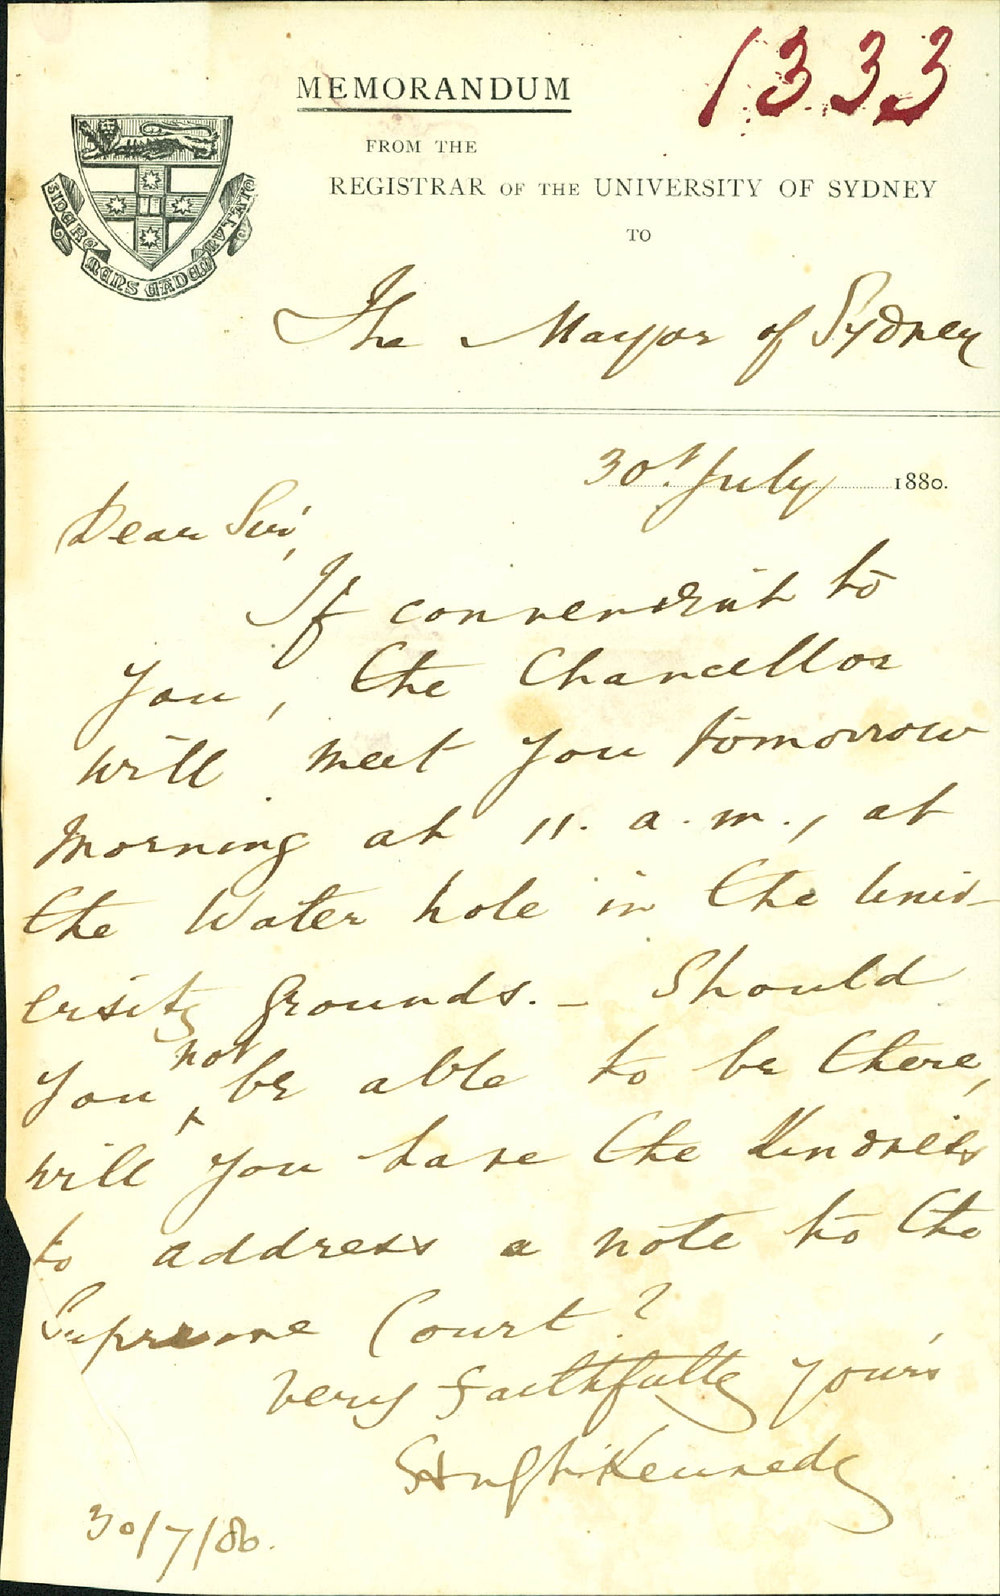 1333
MEMORANDUM
FROM THE
REGISTRAR OF THE UNIVERSITY OF SYDNEY
TO
SIDERE MENS EADEM MUTATO
The Mayor of Sydney
30t. July 1880.
Dear Sir,
If convenient to
you, the Chancellor
will meet you tomorrow
morning at 11. a.m., at
the Water hole in the Univ-
ersity grounds. – Should
you not be able to be there,
will you have the kindness
to address a note to the
Supreme Court?
Very faithfully yours
Hugh Kennedy
30/7/80.